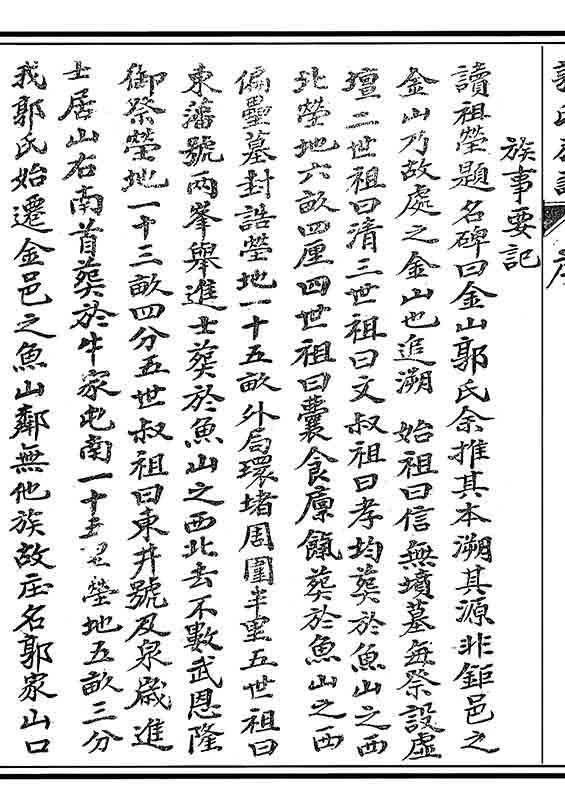 族事要記
讀祖塋題名碑曰金山郭氏余推其本溯其源非鉅邑之
金山乃故處之金山也追溯 始祖曰信無墳墓每祭設虛
壇二世祖曰清三世祖曰文叔祖曰孝均葵於魚山之西
北塋地六畝四厘四世祖曰囊食廩餼葵於魚山之西
偏壘墓封誥塋地一十五畝外局環堵周圍半里五世祖曰
東藩號兩峯舉進士葵於魚山之西北去不數武恩隆
御祭塋地一十三畝四分五世叔祖曰東井號及泉歲進
士居山右南首葵於牛家屯南一十五里塋地五畝三分
我郭氏始遷金邑之魚山鄰無他族故庄名郭家山口